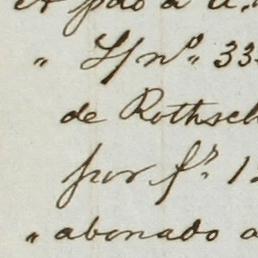 et pdo a u.
" L/ nº 33
de Rothsch
por f.s 12
" abonado a